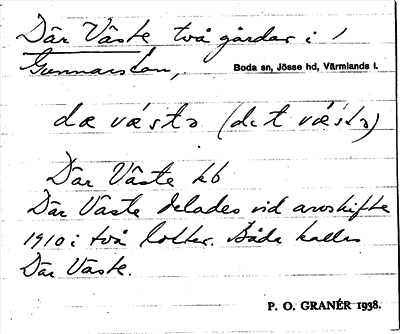 Där Väste två gårdar i 1
Gunnarsbon,
Boda sn, Jösse hd, Värmlands l.
dæ västə (det västə)
Där Väste kb
Där Väste delades vid arvskifte
1910 i två lotter. Båda kallas
Där Väste.
P. O. GRANÉR 1938.